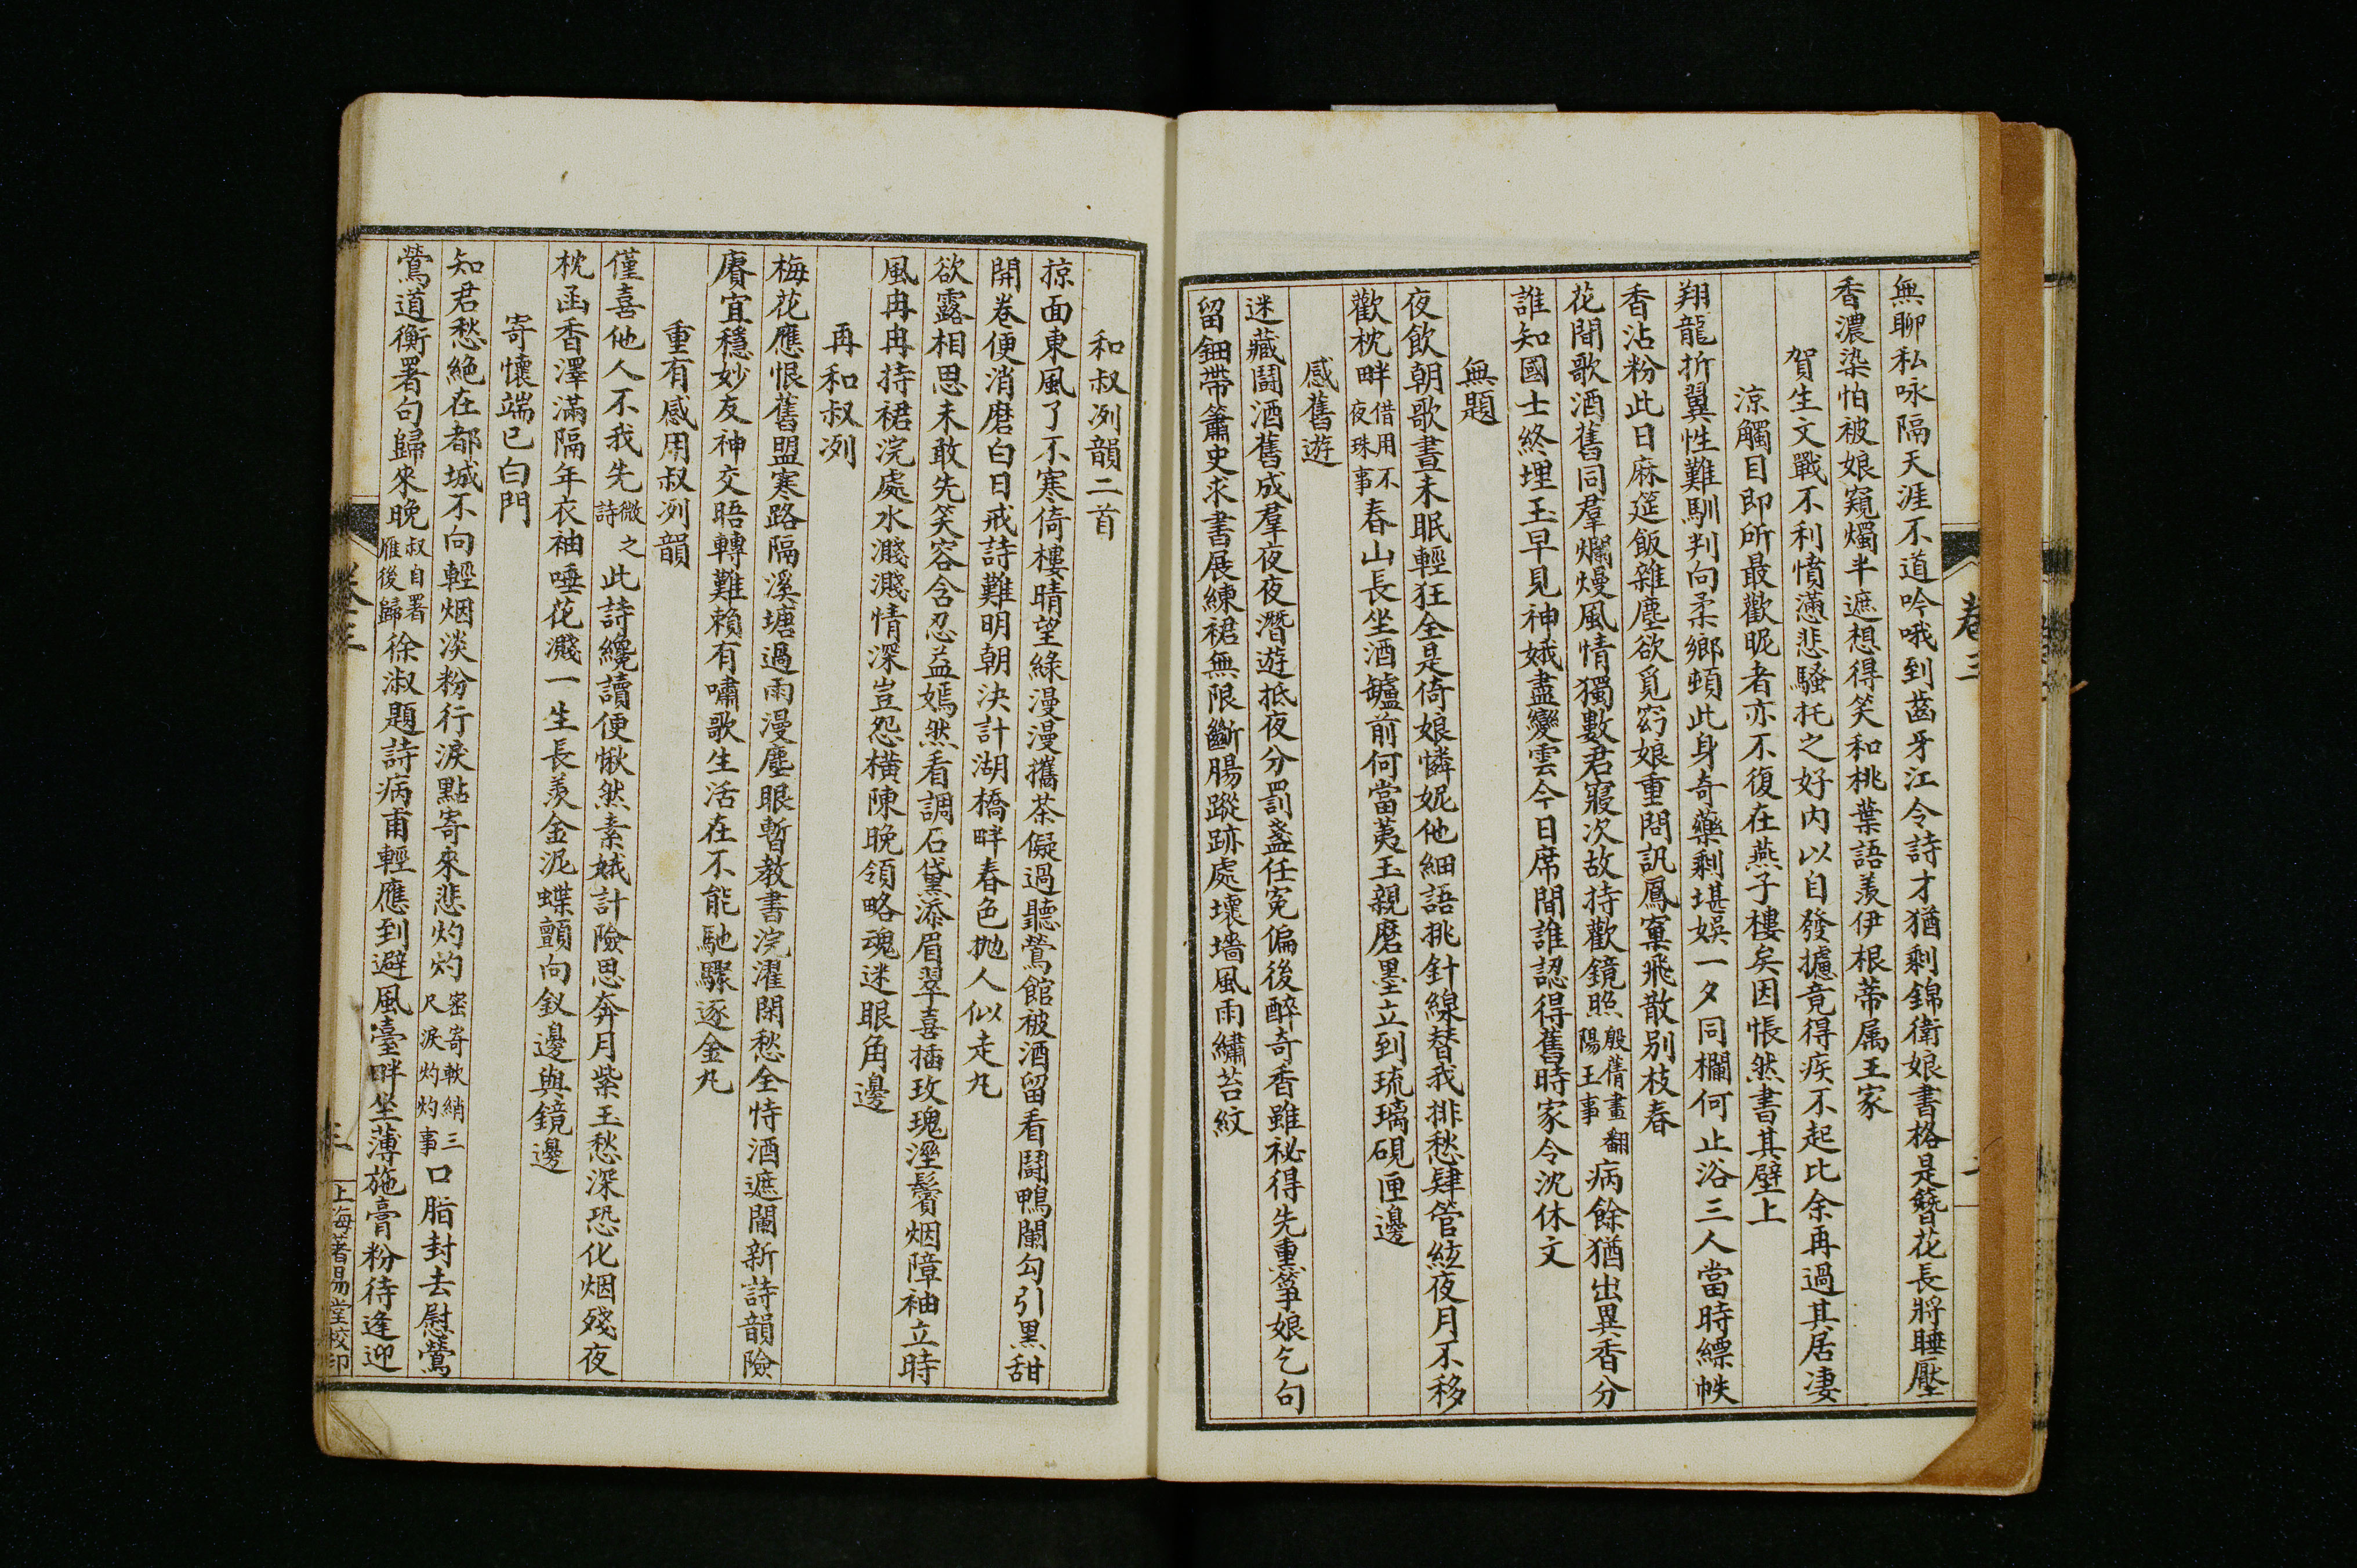 無聊私咏隔天涯不道吟哦到齒牙江令詩才猶剩錦衛娘書格是簪花長將睡壓
香濃染怕被娘窺燭半遮想得笑和桃葉語羨伊根蒂属王家
賀生文戰不利憤懣悲騷托之好內以自發攄竟得疾不起比余再過其居凄
涼觸目即所最歡昵者亦不復在燕子樓矣因悵然書其壁上
翔龍折翼性難馴判向柔鄉頓此身奇藥剩堪娛一夕同欄何止浴三人當時縹帙
香沾粉此日麻筵飯雜塵欲覓窈娘重問訊鳳窠飛散別枝春
花間歌酒舊同羣爛熳風情獨數君寢次故持歡鏡照殷蒨畫翻陽王事病餘猶出異香分
誰知國士終埋玉早見神娥盡變雲今日席間誰認得舊時家令沈休文
無題
夜飲朝歌晝未眠輕狂全是倚娘憐妮他細語挑針線替我排愁肄管絃夜月不移
歡枕畔借用不夜珠事春山長坐酒鑪前何當荑玉親磨墨立到琉璃硯匣邊
感舊遊
迷藏鬪酒舊成羣夜夜潛遊抵夜分罰盞任寃偏後醉奇香雖祕得先熏箏娘乞句
留鈿帶簫史求書展練裙無限斷腸蹤跡處壞墻風雨繡苔紋
卷三
和叔冽韻二首
掠面東風了不寒倚樓晴望綠漫漫攜茶儗過聽鶯館被酒留看鬪鴨闌勾引黑甜
開卷便消磨白日戒詩難明朝決計湖橋畔春色抛人似走丸
欲露相思未敢先笑容含忍益嫣然看調石黛添眉翠喜插玫瑰溼鬢烟障袖立時
風冉冉持裙浣處水濺濺情深豈怨橫陳晚領略魂迷眼角邊
再和叔冽
梅花應恨舊盟寒路隔溪塘過雨漫塵眼暫教書浣濯閑愁全恃酒遮闌新詩韻險
賡宜穩妙友神交晤轉難賴有嘯歌生活在不能馳驟逐金丸
重有感用叔冽韻
僅喜他人不我先微之詩此詩纔讀便愀然素娥計險思奔月紫玉愁深恐化烟殘夜
枕函香澤滿隔年衣袖唾花濺一生長羨金泥蝶顫向釵邊與鏡邊
寄懷端己白門
知君愁絕在都城不向輕烟淡粉行淚點寄來悲灼灼密寄軟綃三尺淚灼灼事口脂封去慰鶯
鶯道衡署句歸來晚叔自署雁後歸徐淑題詩病甫輕應到避風臺畔坐薄施膏粉待逢迎
卷三
三
上海著易堂校印